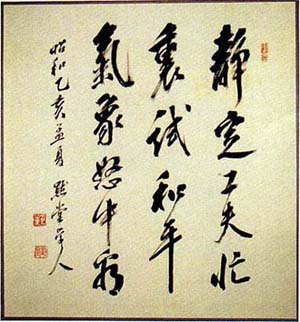 靜定工夫忙
裏試和平
氣象怒中看
昭和乙亥孟夏 默堂学人